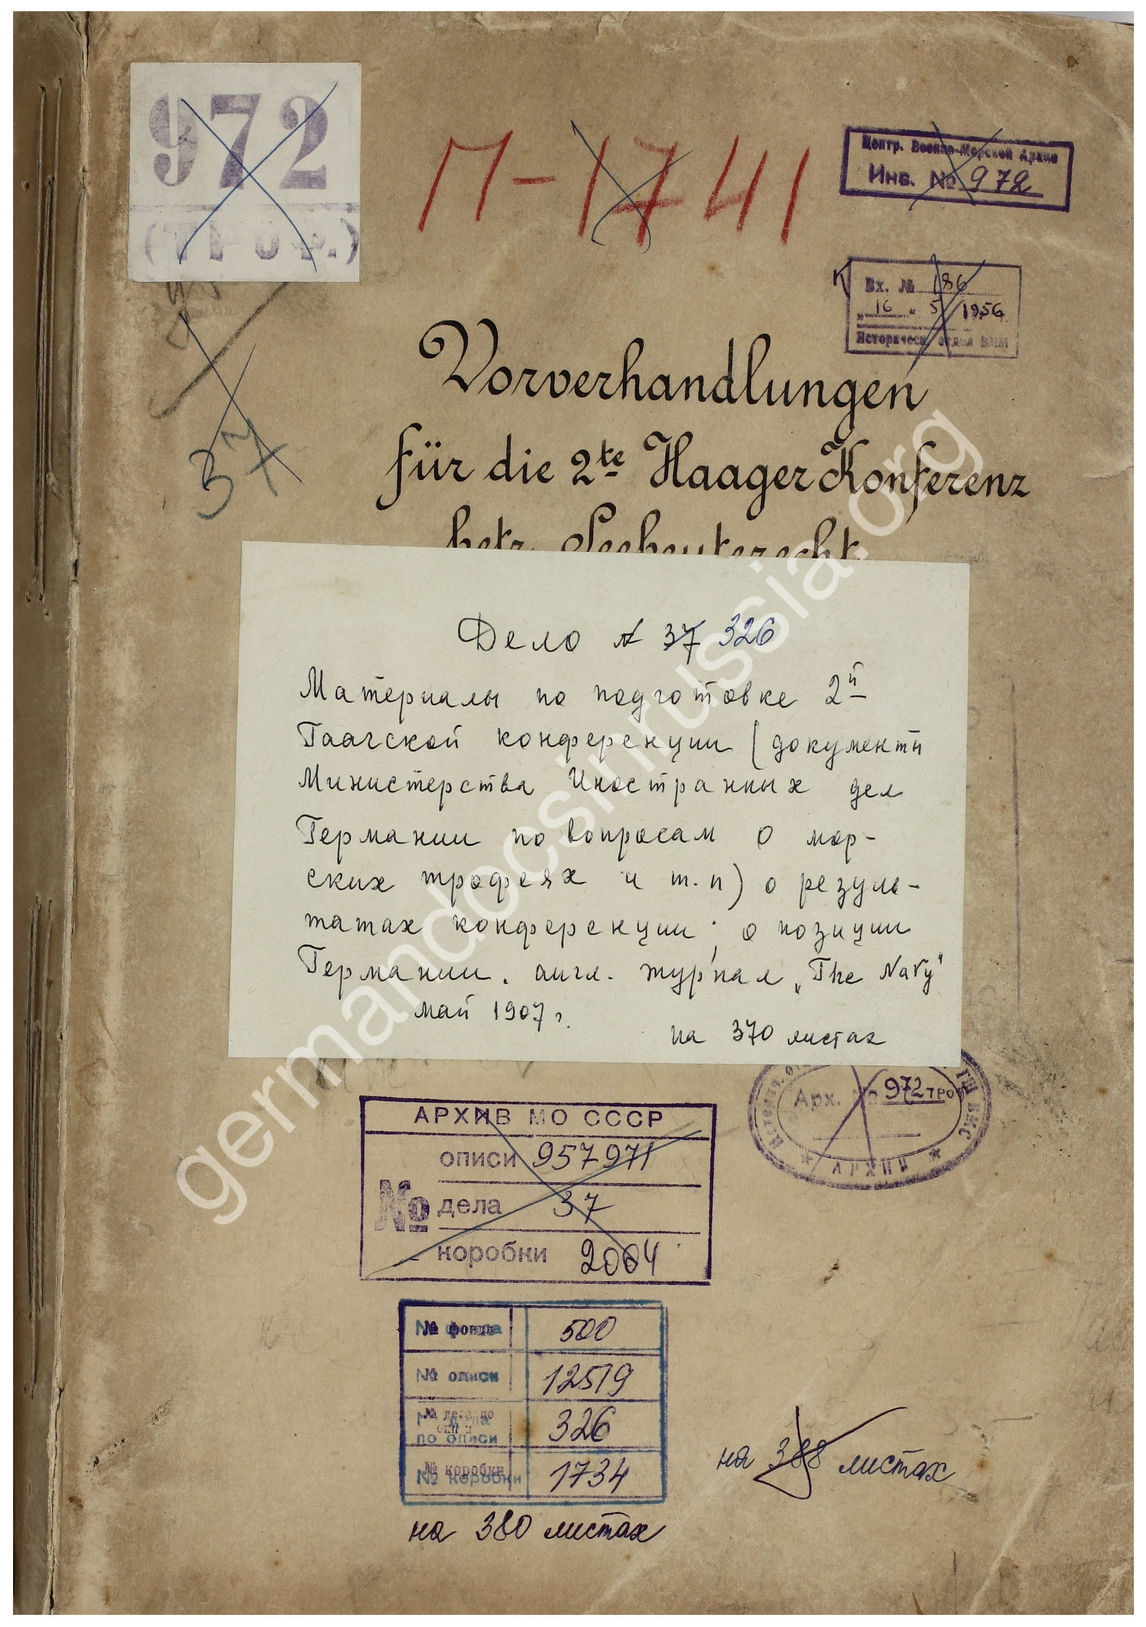 972
(ТРОФ.)
П-1741
Центр. Военно-Морской Архив
Инв. № 972
Вх. № 186
„16" 5 1956
Историческ. отдел
37
Vorverhandlungen
für die 2te Haager Konferenz
betr. Seebeuterecht
Дело № 37 326
Материалы по подготовке 2й
Гаагской конференции (документы
Министерства Иностранных дел
Германии по вопросам о мор-
ских трофеях и т.п) о резуль-
татах конференции; о позиции
Германии. англ. журнал „The Navy"
май 1907 г.
на 370 листах
Арх. № 972 троф
АРХИВ
АРХИВ МО СССР
описи 957971
№ дела 37
коробки 2004
№ фонда 500
№ описи 12519
№ дела по описи 326
№ коробки 1734
на 380 листах
на 388 листах
germandocsinrussia.org